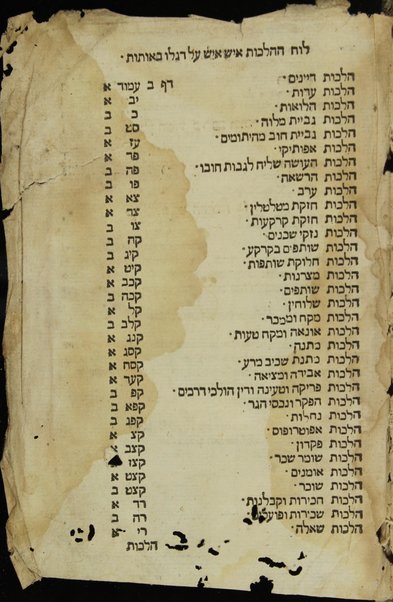 לוח ההלכות איש איש על דגלו באותות ·
הלכות דיינים · דף ב עמוד א
הלכות עדות · יב א
הלכות הלואות · כ ב
הלכות גביית מלוה · סט ב
הלכות גביית חוב מהיתומים · עז א
הלכות אפותיקי · פד א
הלכות העושה שליח לגבות חובו · פה ב
הלכות הרשאה · פו ב
הלכות ערב · צא א
הלכות חזקת מטלטלין · צד א
הלכות חזקת קרקעות · צו ב
הלכות נזקי שכנים · קה ב
הלכות שותפים בקרקע · קיג ב
הלכות חלוקת שותפות · קיט א
הלכות מצרנות · קכב א
הלכות שותפים · קכה ב
הלכות שלוחין · קל א
הלכות מקח וממכר · קלב ב
הלכות אונאה ומקח טעות · קנג א
הלכות מתנה · קסג א
הלכות מתנת שכיב מרע · קסח א
הלכות אבידה ומציאה · קעד א
הלכות פריקה וטעינה ודין הולכי דרכים · קפ ב
הלכות הפקר ונכסי הגר · קפא ב
הלכות נחלות · קפג ב
הלכות אפוטרופוס · קצ א
הלכות פקדון · קצב א
הלכות שומר שכר · קצו
הלכות אומנים · קצט א
הלכות שוכר · קצט ב
הלכות חכירות וקבלנות · רד א
הלכות שכירות ופועלים · רה ב
הלכות שאלה · רי א
הלכות